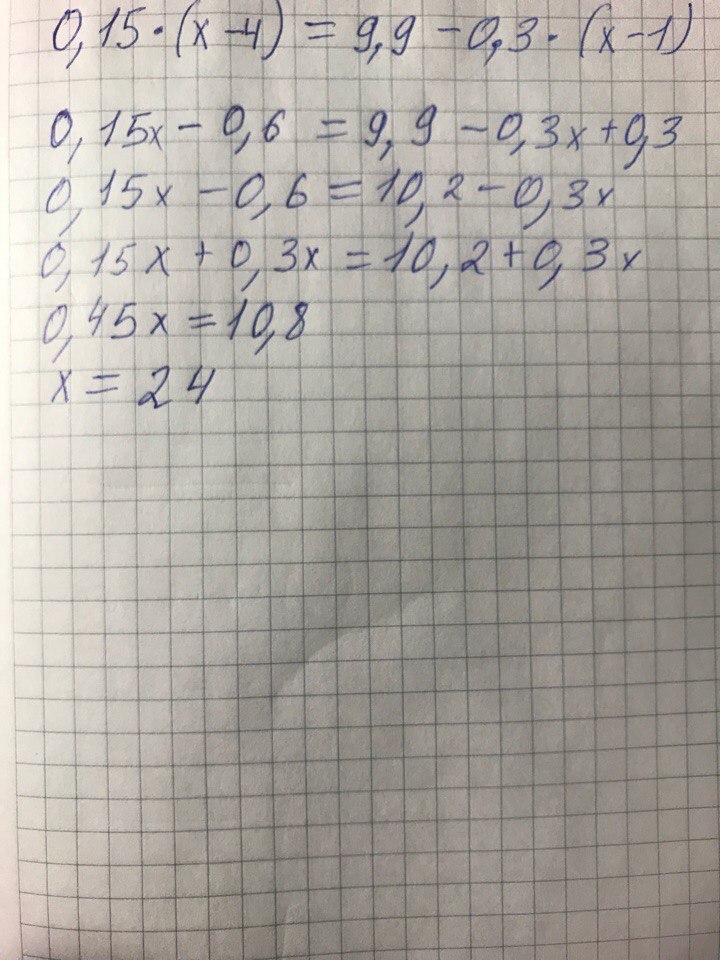 0,15·(x-4) = 9,9-0,3·(x-1)
0,15x-0,6 = 9,9-0,3x+0,3
0,15x-0,6=10,2-0,3x
0,15x+0,3x=10,2+0,3x
0,45x=10,8
x=24